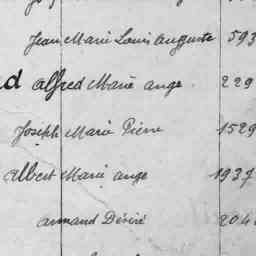 Jean Marie Louis Auguste 593
d Alfred Marie ange 229
Joseph Marie Pierre 1529
Albert Marie ange 1937
armand Désiré 204